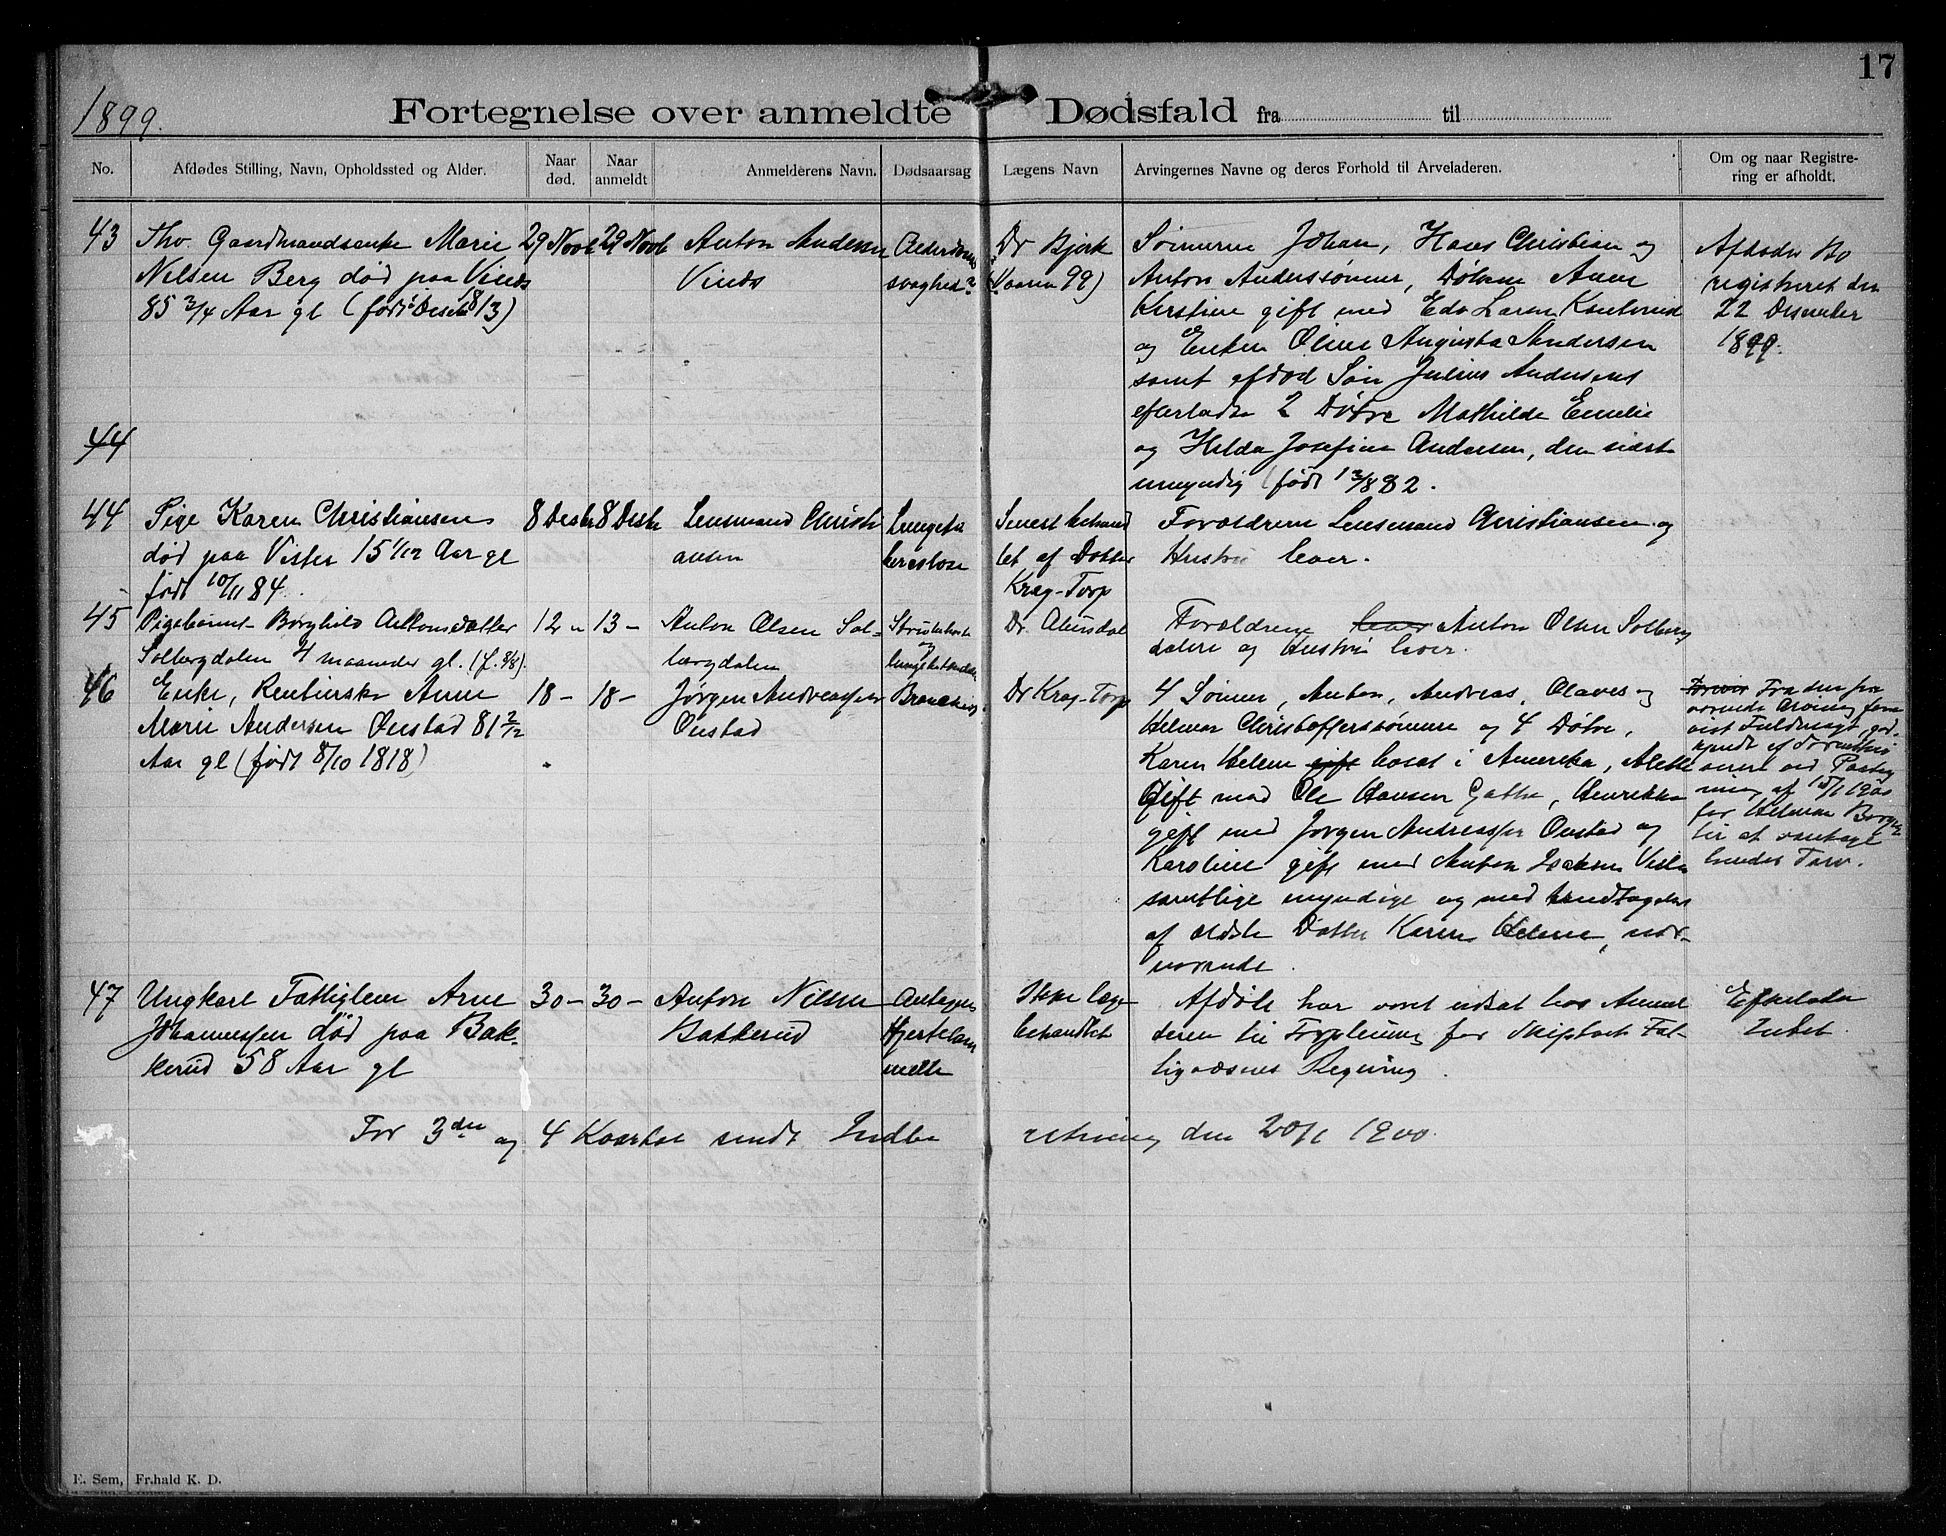 17
1899.
Fortegnelse over anmeldte Dødsfald fra til
No.
Afdødes Stilling, Navn, Opholdssted og Alder.
Naar
død.
Naar
anmeldt
Anmelderens Navn.
Dødsaarsag
Lægens Navn
Arvingernes Navne og deres Forhold til Arveladeren.
Om og naar Registre-
ring er afholdt.
43
Gaardmandsenke Marie
Nielsen Berg død paa Vinds
85 3/4 Aar gl (født Desebr 1813)
29 Novb
29 Novb
Anton Andersen
Vinds
Alderdoms
svaghed?
Dr Bjork
(Vaaren 99)
Sønnerne Johan, Hans Christian og
Anton Anderssønner, Døtrene Anne
Kirstine gift med Edv Larsen
og Enken Oline Augusta Andersen
samt afdød Søn Julius Andersens
efterladte 2 Døtre Mathilde Emelie
og Hilda Josefine Andersen, den sidste
umyndig (født 1 3/882.
Afdødes Bo
registreret den
22 Desember
1899.
44
44
Pige Karen Christiansen
død paa Vister 15 1/12 Aar gl
født 10/11 84.
8 Desbr
8 Desbr
Lensmand Christi
ansen
Lungetu
berculose
Senest behand
let af Doktor
Krag-Torp
Forældrene Lensmand Christiansen og
Hustru lever.
45
Pigebarnet Borghild Antonsdatter
Solbergdalen 4 maaneder gl. (f. 8/8).
12 –
13 –
Anton Olsen Sol-
bergdalen
Strubehoste
og
lungebetændelse
Dr.
Forældrene lever Anton Olsen Solberg
dalen og Hustru lever.
46
Enke, Rentierske Anne
Marie Andersen Ønstad 81 2/12
Aar gl (født 8/10 1818)
18 –
18 –
Jørgen Andreassen
Ønstad
Bronchitis
Dr Krag-Torp
4 Sønner, Anton, Andreas, Olaves og
Helmer Christoffersønner og 4 Døtre,
Karen Helene gift bosat i Amerika, Alette
Gift med Ole Hansen Gatte, Henrikke
gift med Jørgen Andreassen Ønstad og
Karoline gift med Anton Isaksen Vister
samtlige myndige og med Undtagelse
af ældste Datter Karen Helene, nær-
værende.
Fra den fra
værende Arving frem
vist Fuldmagt, god-
kjendt af
ved Paateg
ning af 15/1 1900
for Helmer Borge
til at varetage
hendes Tarv.
47
Ungkarl Fattiglem Arne
Johannessen død paa Bak-
kerud 58 Aar gl
30 –
30 –
Anton Nilsen
Bakkerud
Antagen
Hjertelam
melse
Ikke læge
behandlet
Afdøde har været udsat hos Anmel
deren til Forpleining for Skiptvet Fat-
tigvæsnes Regning.
Efterlader
Intet.
For 3die og 4 Kvartal sendt Indbe
retning den 20/1 1900.
E. Sem, Fr.hald K. D.